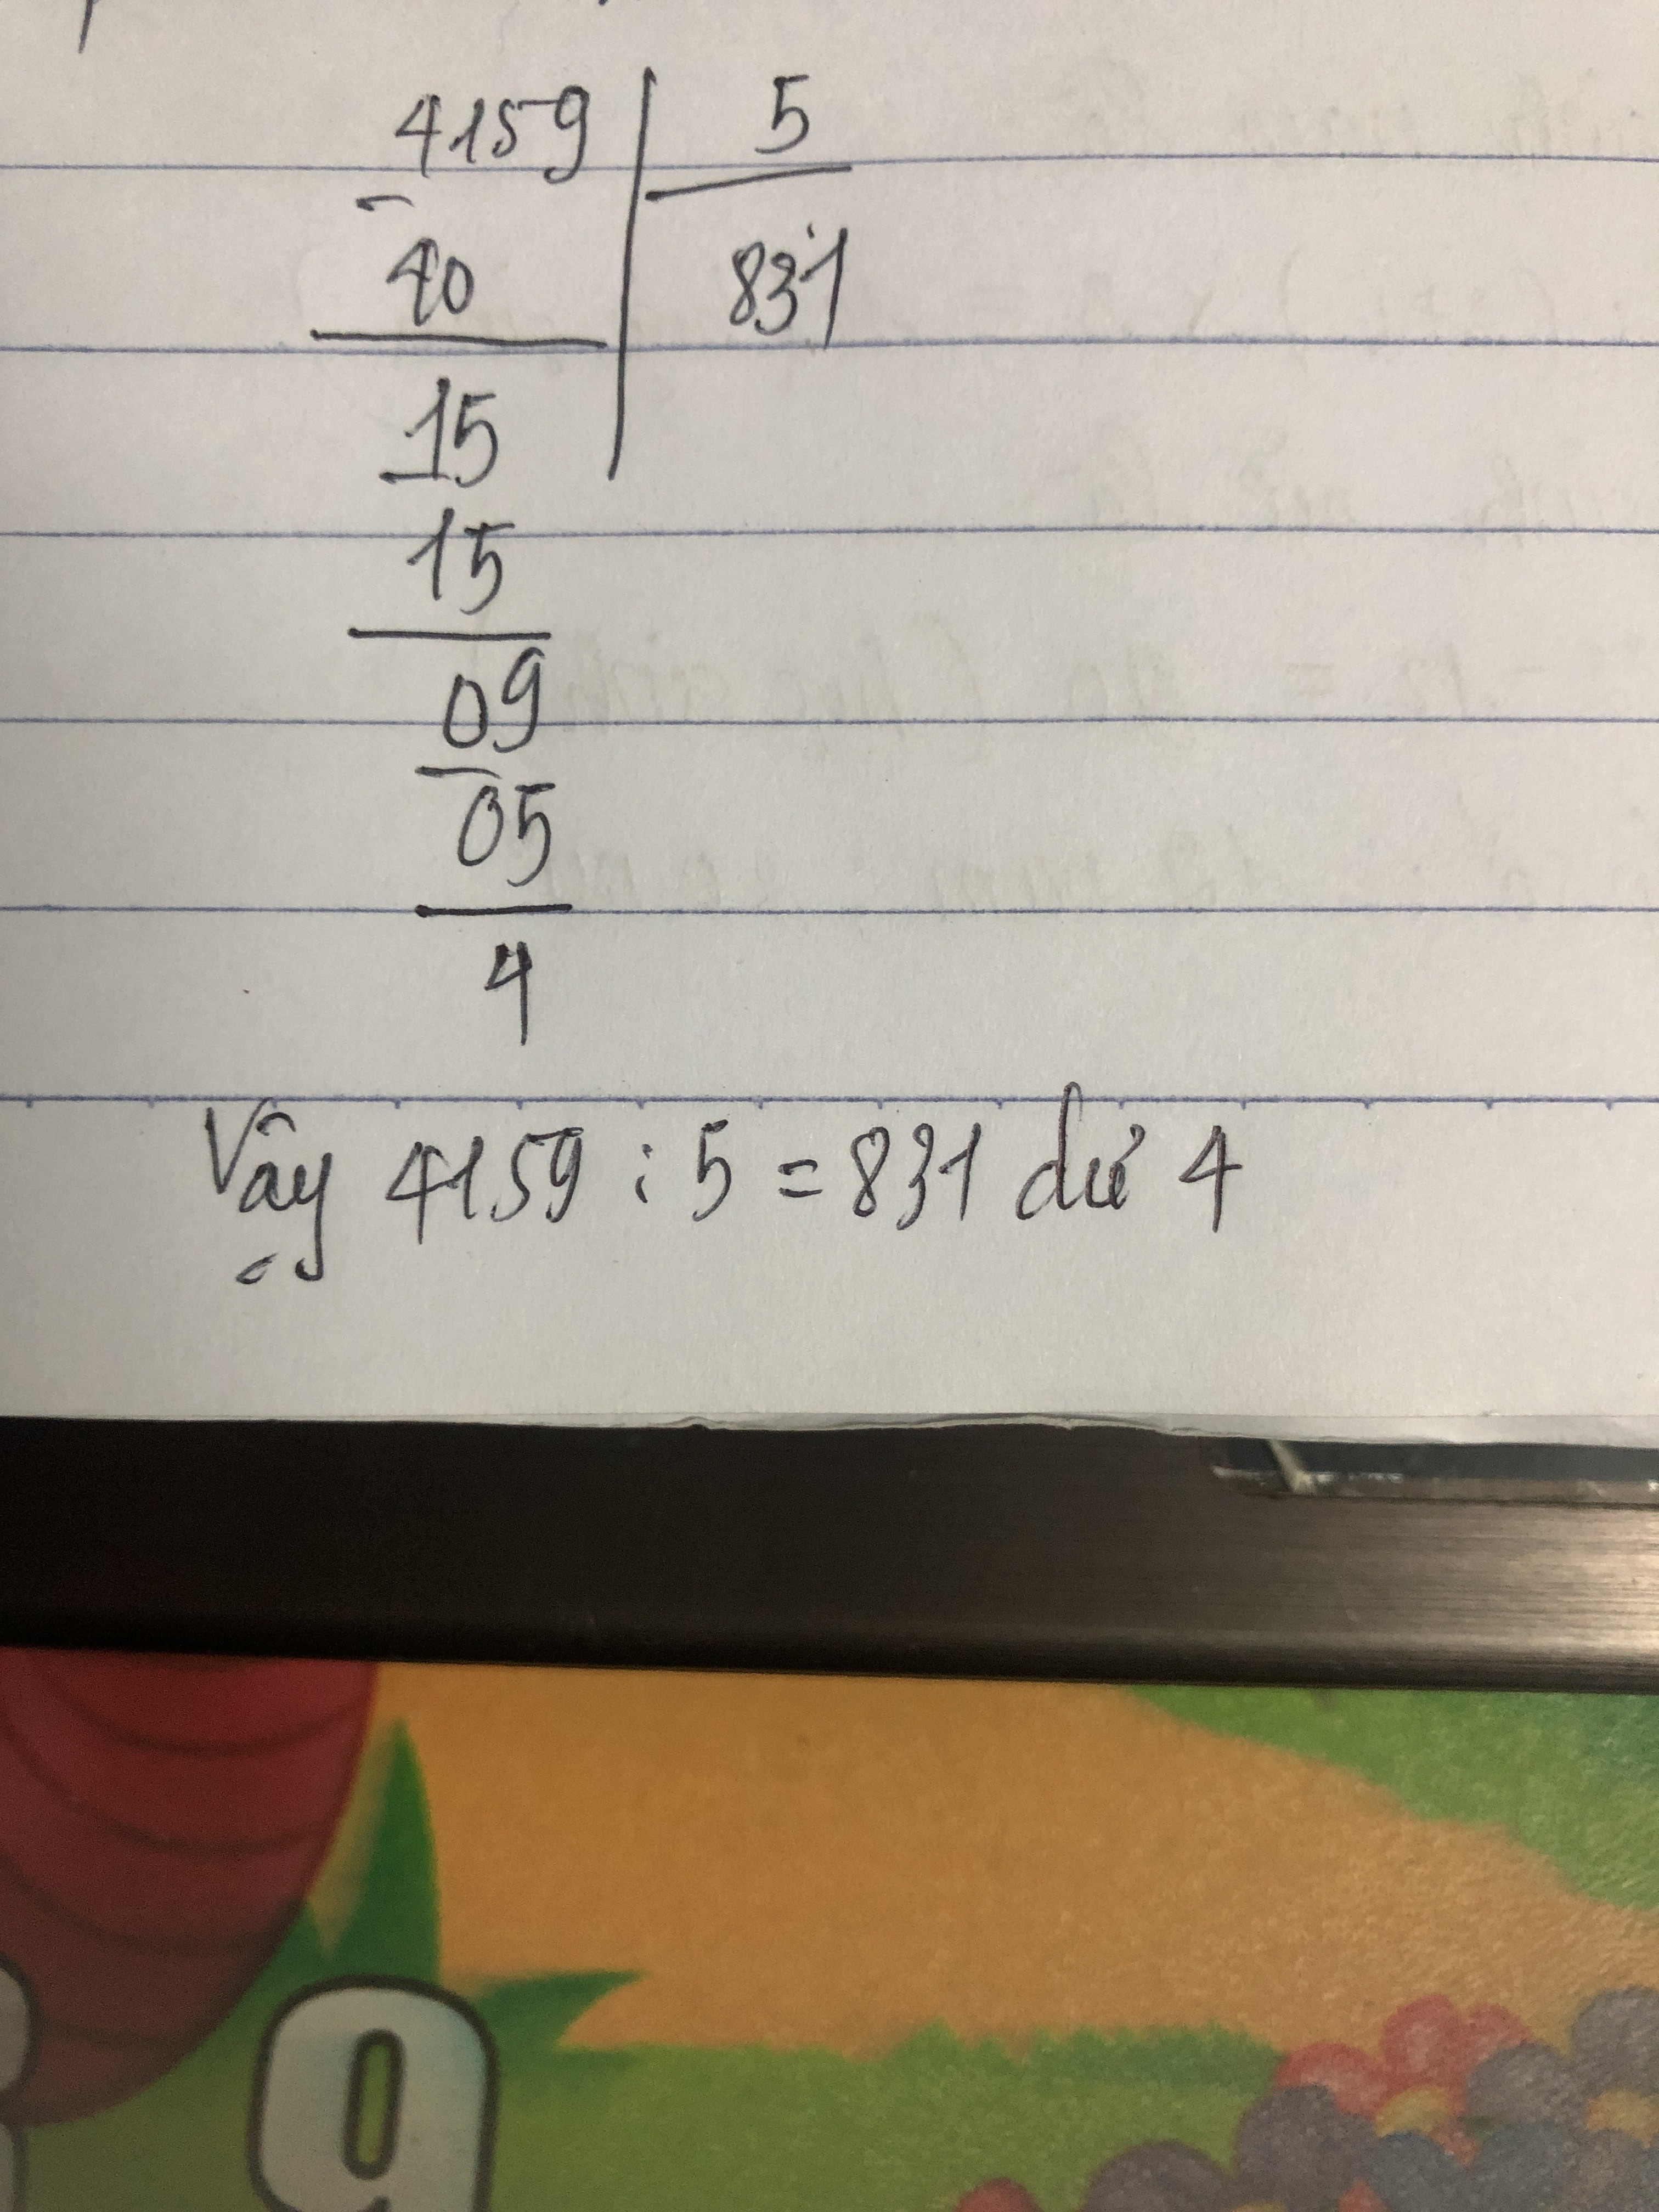 4159 | 5
- 40 | 831
15
- 15
09
- 05
4
Vậy 4159 : 5 = 831 dư 4
9